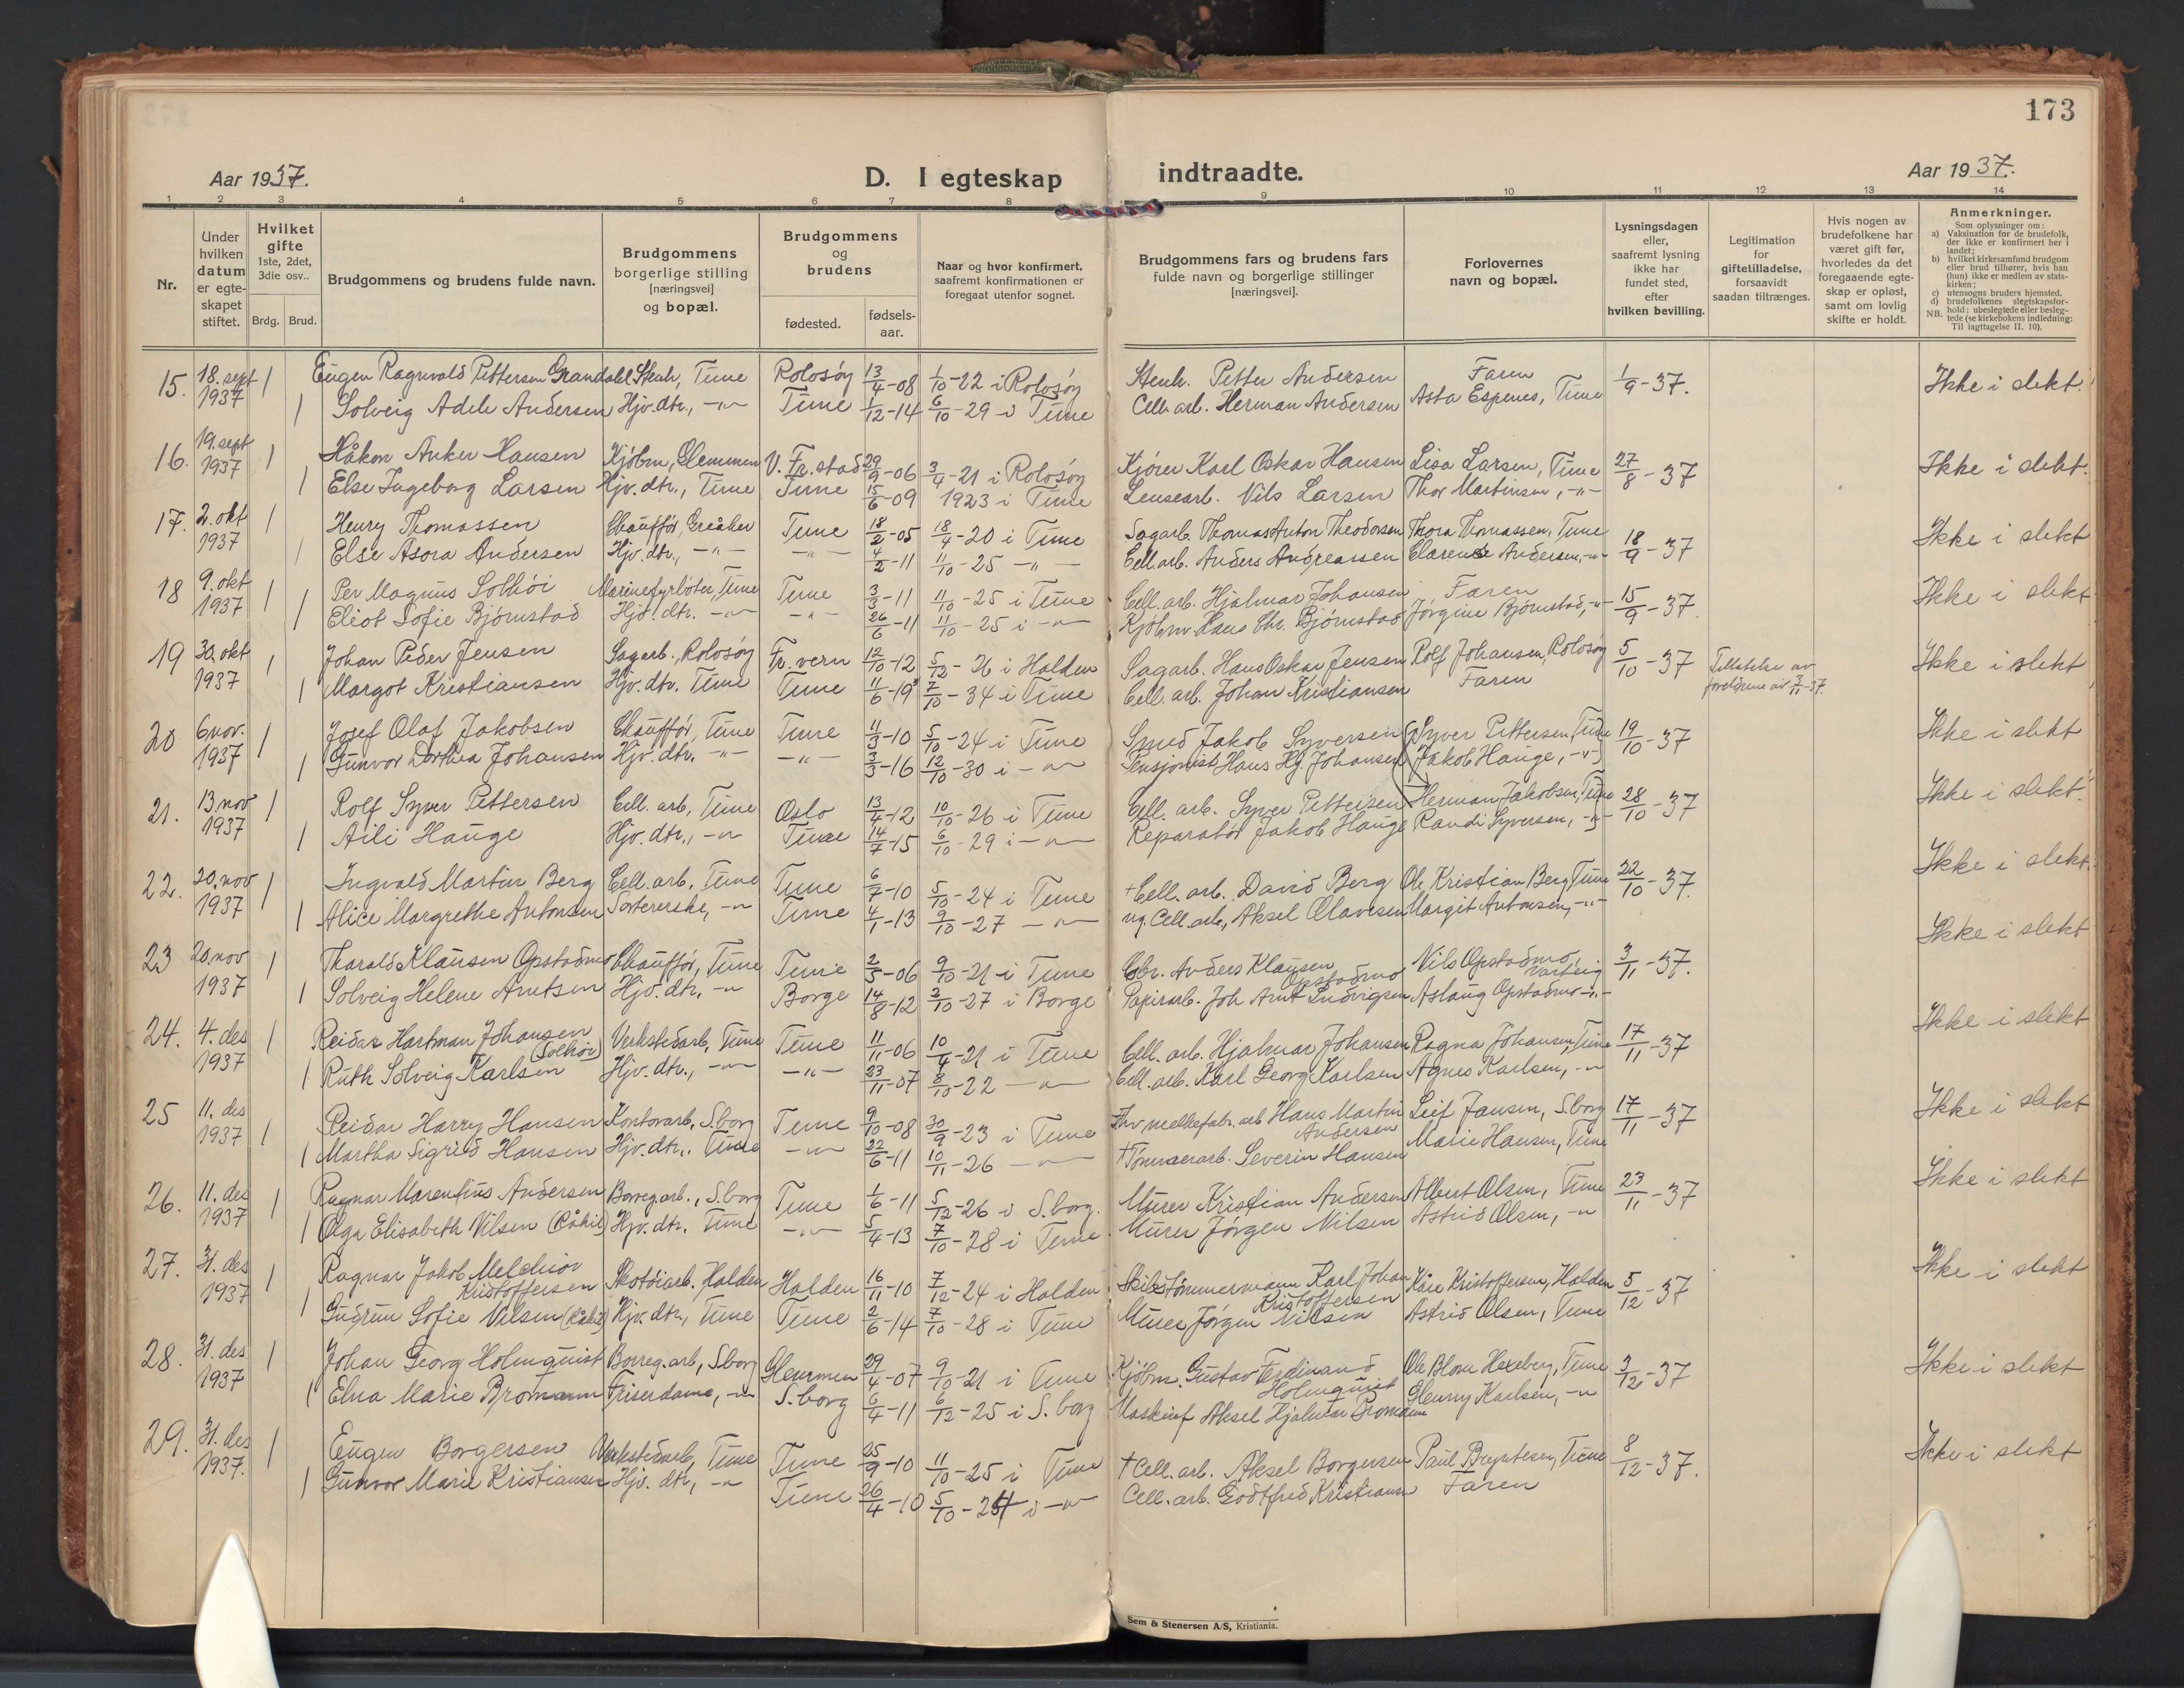 173
Aar 1937.
D. I egteskap indtraadte.
Aar 1937.
1 2 3 4 5 6 7 8 9 10 11 12 13 14
Nr.
Under hvilken datum er egteskapet stiftet.
Hvilket gifte 1ste, 2det, 3die osv..
Brdg. Brud.
Brudgommens og brudens fulde navn.
Brudgommens borgerlige stilling [næringsvei] og bopæl.
Brudgommens og brudens
fødested.
fødsels-aar.
Naar og hvor konfirmert, saafremt konfirmationen er foregaat utenfor sognet.
Brudgommens fars og brudens fars fulde navn og borgerlige stillinger [næringsvei].
Forlovernes navn og bopæl.
Lysningsdagen eller, saafremt lysning ikke har fundet sted, efter hvilken bevilling.
Legitimation for giftetilladelse, forsaavidt saadan tiltrænges.
Hvis nogen av brudefolkene har været gift før, hvorledes da det foregaaende egteskap er opløst, samt om lovlig skifte er holdt.
Anmerkninger.
Som oplysninger om:
a) Vaksination for de brudefolk, der ikke er konfirmert her i landet;
b) hvilket kirkesamfund brudgom eller brud tilhører, hvis han (hun) ikke er medlem av statskirken;
c) utensogns bruders hjemsted.
d) brudefolkenes slegtskapsforhold: ubeslegtede eller beslegtede (se kirkebokens indledning: Til iagttagelse II. 10).
NB.
15. 18. sept 1937 1 Eugen Ragnvald Pettersen Grandahl Stenh, Tune Rolvsøy 13/4-08 1/10-22 i Rolvsøy Stenh. Petter Andersen Faren 1/9-37. Ikke i slekt.
1 Solveig Adele Andersen Hjv. dtr., -"- Tune 1/12-14 6/10-29 i Tune Cell. arb. Herman Andersen Asta Espenes, Tune
16. 19. sept 1937 1 Håkon Anker Hansen Kjøbm, Glemmen V. Fr. stad 29/9-06 3/4-21 i Rolvsøy Kjører Karl Oskar Hansen Lisa Larsen, Tune 27/8-37 Ikke i slekt.
1 Else Ingeborg Larsen Hjv. dtr., Tune Tune 15/6-09 1923 i Tune Lensearb. Nils Larsen Thor Martinsen, -"-
17. 2. okt 1937 1 Henry Thomassen Chauffør, Greåker Tune 18/2-05 18/4-20 i Tune Sagarb. Thomas Anton Theodorsen Thora Thomassen, Tune 18/9-37 Ikke i slekt
1 Else Asora Andersen Hjv. dtr., -"- -"- 4/2-11 11/10-25 -"- Cell. arb. Anders Andreassen Clarence Andersen, -"-
18 9. okt 1937 1 Per Magnus Solhøi Marinefyrbøter, Tune Tune 3/3-11 11/10-25 i Tune Cell. arb. Hjalmar Johansen Faren 15/9-37. Ikke i slekt
1 Eliot Sofie Bjørnstad Hjv. dtr. -"- -"- 26/6-11 11/10-25 i -"- Kjøbm. Hans Chr. Bjørnstad Jørgine Bjørnstad, -"-
19 30. okt 1937 1 Johan Peder Jensen Sagarb., Rolvsøy Fr. vern 12/10-12 5/12-26 i Halden Sagarb. Hans Oskar Jensen Rolf Johansen, Rolvsøy 5/10-37 Tillatelse av foreldrene av 3/11-37. Ikke i slekt
1 Margot Kristiansen Hjv. dtr. Tune Tune 11/6-19 7/10-34 i Tune Cell. arb. Johan Kristiansen Faren
20 6 nov. 1937 1 Josef Olaf Jakobsen Chauffør, Tune Tune 11/3-10 5/10-24 i Tune Smed Jakob Syversen (Syver Pettersen Tune 19/10-37 Ikke i slekt
1 Gunvor Dorthea Johansen Hjv. dtr. -"- -"- 3/3-16 12/10-30 i -"- Pensjonist Hans Hj. Johansen Jakob Hauge, -"-)
21. 13. nov 1937 1 Rolf Syver Pettersen Cell. arb, Tune Oslo 13/4-12 10/10-26 i Tune Cell. arb. Syver Pettersen Herman Jakobsen, Tune 28/10-37 Ikke i slekt.
1 Aili Hauge Hjv. dtr., -"- Tune 14/7-15 6/10-29 i -"- Reparatør Jakob Hauge Randi Syversen, -"-
22. 20. nov 1937 1 Ingvald Martin Berg Cell. arb. Tune Tune 6/7-10 5/10-24 i Tune +Cell. arb. David Berg Ole Kristian Berg Tune 22/10-37. Ikke i slekt.
1 Alice Margrethe Antonsen Sortererske, -"- Tune 4/1-13 9/10-27 -"- ug. Cell. arb., Aksel Olavesen Margit Antonsen, -"-
23 20. nov 1937 1 Tharald Klausen Opstadmo Chauffør, Tune Tune 2/5-06 9/10-21 i Tune Gbr. Anders Klausen Opstadmo Nils Opstadmo, Varteig 3/11-37. Ikke i slekt
1 Solveig Helene Arntsen Hjv. dtr. -"- Borge 14/8-12 2/10-27 i Borge Papirarb. Joh Arnt Ludvigsen Aslaug Opstadmo -"-
24. 4. des 1937 1 Reidar Hartman Johansen (Solhøi) Verkstedarb, Tune Tune 11/11-06 10/4-21 i Tune Cell. arb. Hjalmar Johansen Ragna Johansen, Tune 17/11-37 Ikke i slekt
1 Ruth Solveig Karlsen Hjv. dtr., -"- -"- 23/11-07 8/10-22 -"- Cell. arb. Karl Georg Karlsen Agnes Karlsen, -"-
25 11. des 1937 1 Reidar Harry Hansen Kontorarb., S.borg Tune 9/10-08 30/9-23 i Tune +hv. mellefabr. arb Hans Martin Andersen Leif Jansen, S.borg 17/11-37 Ikke i slekt
1 Martha Sigrid Hansen Hjv. dtr., Tune -"- 22/6-11 10/11-26 -"- +Tømmerarb. Severin Hansen Marie Hansen, Tune
26. 11. des 1937 1 Ragnar Marentius Andersen Borreg. arb., S.borg Tune 1/6-11 5/12-26 i S.borg. Murer Kristian Andersen Albert Olsen, Tune 23/11-37 Ikke i slekt
1 Olga Elisabeth Nilsen (Råkil) Hjv. dtr. Tune -"- 5/4-13 7/10-28 i Tune Murer Jørgen Nilsen Astrid Olsen, -"-
27. 31. des 1937 1 Ragnar Jakob Melchior Kristoffersen Skotøiarb. Halden Halden 16/11-10 7/12-24 i Halden Skibstømmermann Karl Johan Kristoffersen Kåre Kristoffersen, Halden 5/12-37 Ikke i slekt
1 Gudrun Sofie Nilsen (Råkil) Hjv. dtr., Tune Tune 2/6-14 7/10-28 i Tune Murer Jørgen Nilsen Astrid Olsen, Tune
28. 31. des 1937 1 Johan Georg Holmquist Borreg. arb, S.borg Glemmen 29/4-07 9/10-21 i Tune Kjøbm. Gustav Ferdinand Holmquist Ole Blom Hexeberg, Tune 3/12-37 Ikke i slekt
1 Elna Marie Bromann Friserdame, -"- S.borg 6/4-11 6/12-25 i S.borg Maskinf Aksel Hjalmar Bromann Glenny Karlsen, -"-
29. 31. des 1937. 1 Eugen Borgersen Verkstedarb, Tune Tune 25/9-10 11/10-25 i Tune +Cell. arb. Aksel Borgersen Paul Bryntesen, Tune 8/12-37. Ikke i slekt
1 Gunvor Marie Kristiansen Hjv. dtr, -"- Tune 26/4-10 5/10-24 i -"- Cell. arb. Godtfred Kristiansen Faren
Sem & Stenersen A/S, Kristiania.